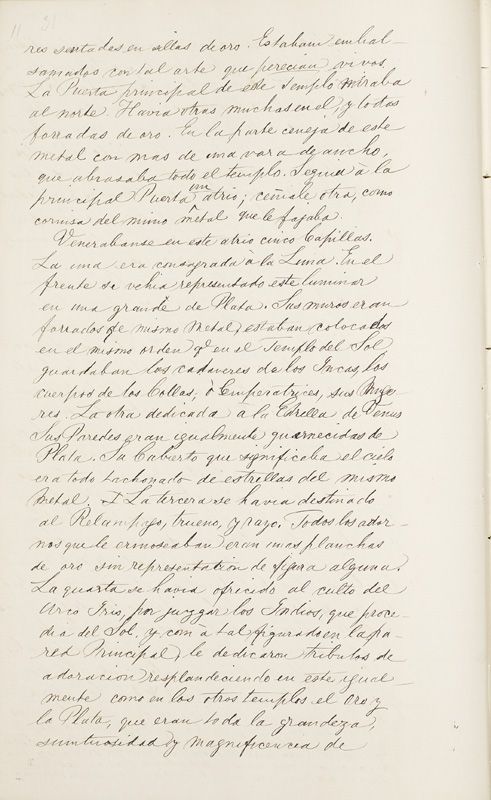 11 31
res sentados, en sillas de oro. Estaban embal-
samados con tal arte que perecian vivos.
La Puerta principal de este Templo miraba
al norte. Havia otras muchas en el, y todas
forradas de oro. En la parte ceneja de este
metal con mas de una vara de ancho,
que abrasaba todo el templo. Seguia à la
principal Puerta un atrio; ceñiale otra, como
cornisa del mimo metal que le fajaba.
Venerabanse en este atrio cinco Capillas.
La una era consagrada à la Luna. En el
frente se vehia representado este luminar
en una grande de Plata. Sus muros eran
forrados de mismo metal, estaban colocados
en el mismo orden qe en el Templo del Sol
guardaban los cadaveres de los Incas, los
cuerpos de las Collas, ò Emperatrices, sus Muge-
res. La otra dedicada a la Estrella de Venus
Sus Paredes eran igualmente guarnecidas de
Plata. Su Cabierto que significaba el cielo
era todo tachonado de estrellas del mismo
metal. La tercera se havia destinado
al Relampago, trueno, y rayo. Todos los ador-
nos que le ermoseaban eran unas planchas
de oro sin representation de figura alguna.
La quarta se havia ofricido al culto del
Arco Iris, por juzgar los Indios, que proce-
dia del Sol, y com à tal figurado en la pa-
red Principal, le dedicaron tributos de
adoracion, resplandeciendo en este igual
mente como en los otros templos el oro y
la Plata, que eran toda la grandeza,
sumtuosidad y magnificencia de